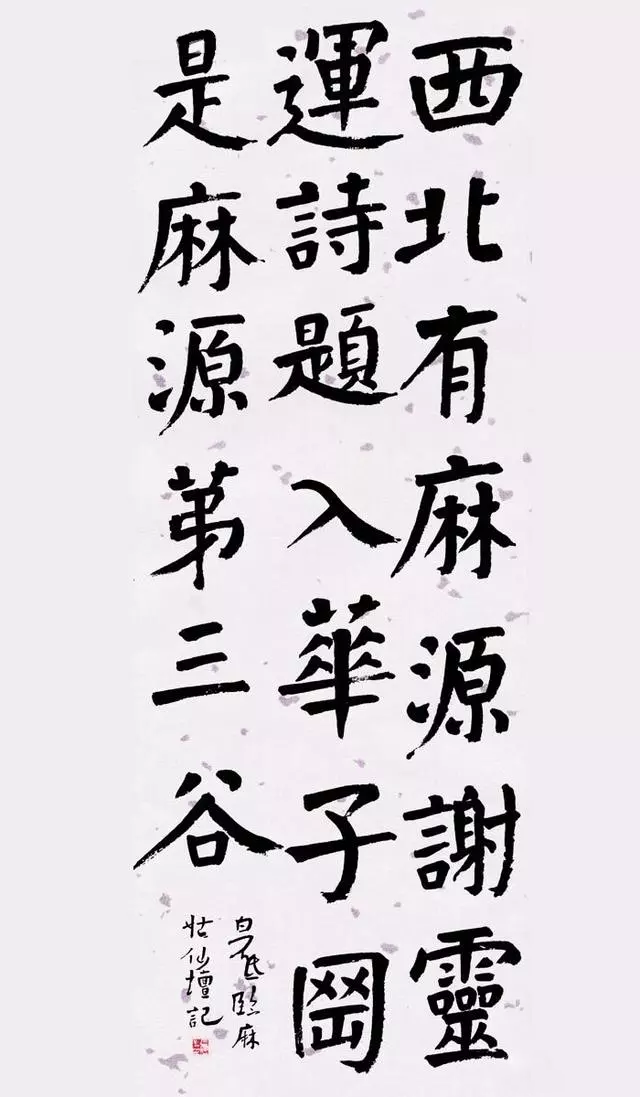 西北有麻源謝靈
運詩題入華子岡
是麻源第三谷
臨麻
姑仙壇記